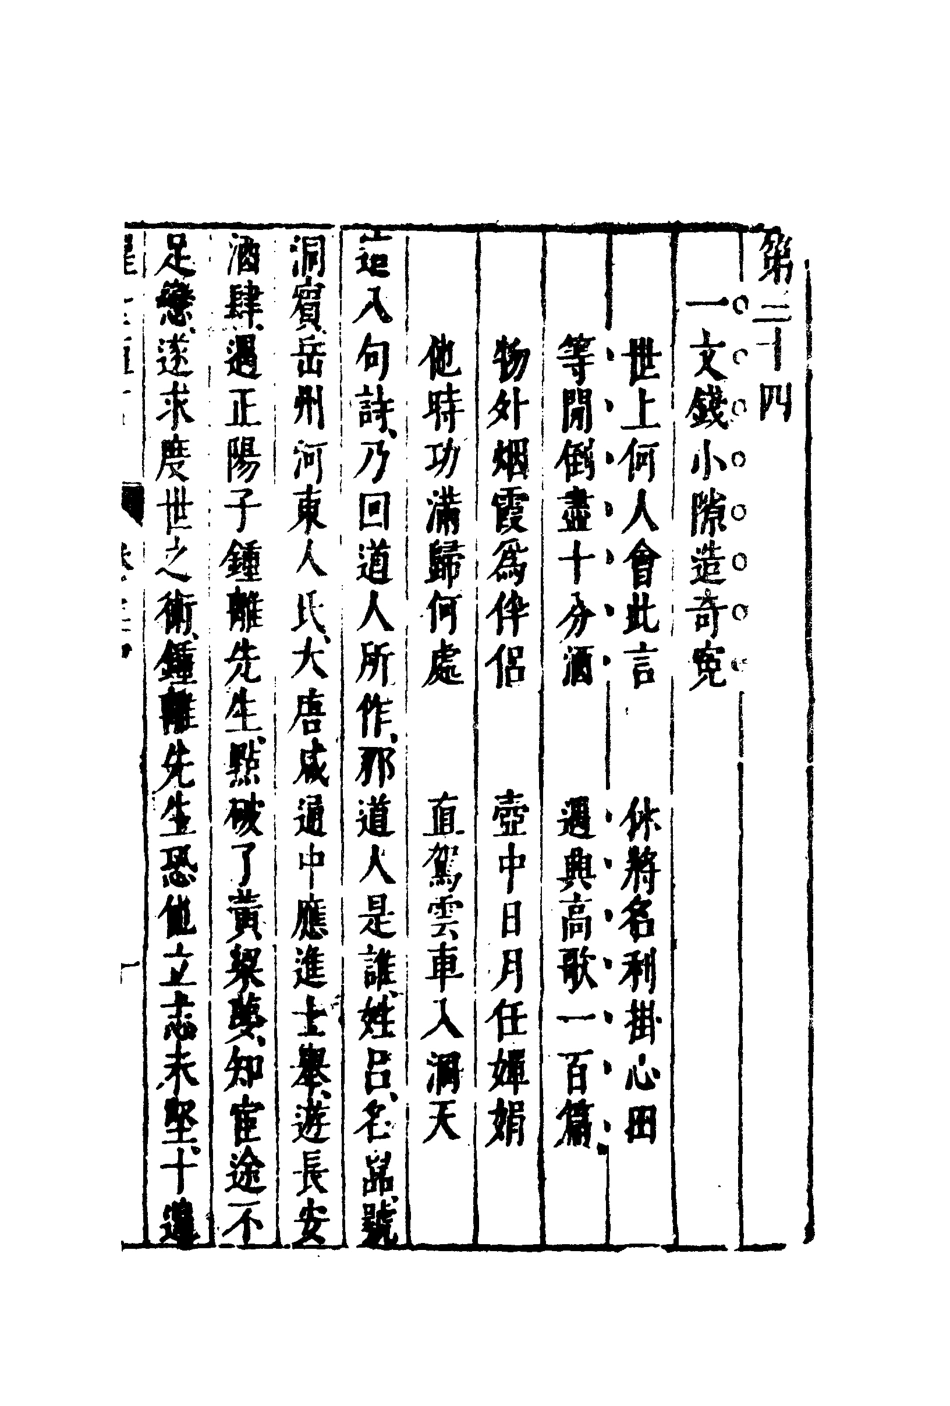 第三十四
一文錢小隙造奇寃
世上何人會此言　休將名利掛心田
等閒倒盡十分酒　遇興高歌一百篇
物外烟霞爲伴侶　壺中日月任嬋娟
他時功滿歸何處　直駕雲車入洞天
這八句詩、乃回道人所作、那道人是誰、姓呂、名嵒、號
洞賓、岳州河東人氏、大唐咸通中應進士舉、遊長安
酒肆、遇正陽子鍾離先生、點破了黃粱夢、知宦途不
足戀、遂求度世之術、鍾離先生恐他立志未堅、十遍